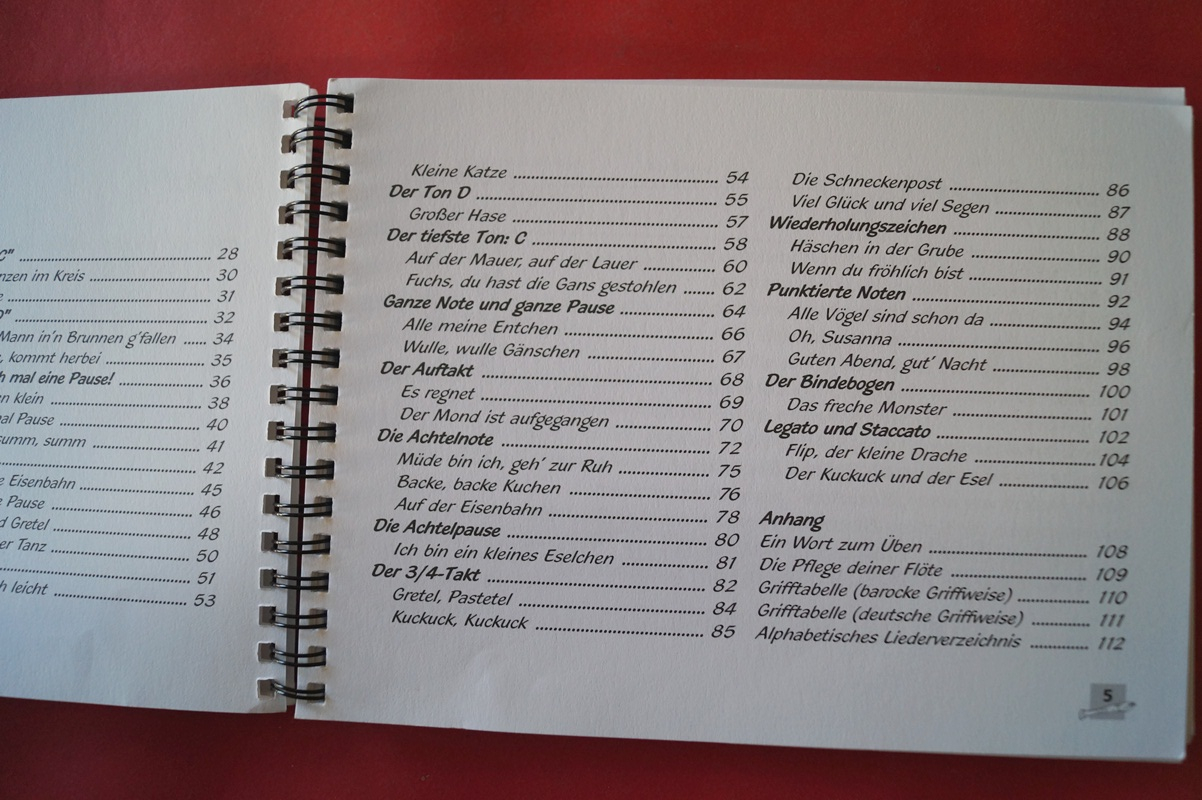 C" ........ 28
nzen im Kreis ........ 30
e ........ 31
D" ........ 32
Mann in'n Brunnen g'fallen ...... 34
, kommt herbei ........ 35
h mal eine Pause! ........ 36
n klein ........ 38
nal Pause ........ 40
summ, summ ........ 41
........ 42
e Eisenbahn ........ 45
e Pause ........ 46
d Gretel ........ 48
er Tanz ........ 50
........ 51
h leicht ........ 53
Kleine Katze ........ 54
Der Ton D ........ 55
Großer Hase ........ 57
Der tiefste Ton: C ........ 58
Auf der Mauer, auf der Lauer ........ 60
Fuchs, du hast die Gans gestohlen ........ 62
Ganze Note und ganze Pause ........ 64
Alle meine Entchen ........ 66
Wulle, wulle Gänschen ........ 67
Der Auftakt ........ 68
Es regnet ........ 69
Der Mond ist aufgegangen ........ 70
Die Achtelnote ........ 72
Müde bin ich, geh' zur Ruh ........ 75
Backe, backe Kuchen ........ 76
Auf der Eisenbahn ........ 78
Die Achtelpause ........ 80
Ich bin ein kleines Eselchen ........ 81
Der 3/4-Takt ........ 82
Gretel, Pastetel ........ 84
Kuckuck, Kuckuck ........ 85
Die Schneckenpost ........ 86
Viel Glück und viel Segen ........ 87
Wiederholungszeichen ........ 88
Häschen in der Grube ........ 90
Wenn du fröhlich bist ........ 91
Punktierte Noten ........ 92
Alle Vögel sind schon da ........ 94
Oh, Susanna ........ 96
Guten Abend, gut' Nacht ........ 98
Der Bindebogen ........ 100
Das freche Monster ........ 101
Legato und Staccato ........ 102
Flip, der kleine Drache ........ 104
Der Kuckuck und der Esel ........ 106
Anhang
Ein Wort zum Üben ........ 108
Die Pflege deiner Flöte ........ 109
Grifftabelle (barocke Griffweise) ........ 110
Grifftabelle (deutsche Griffweise) ........ 111
Alphabetisches Liederverzeichnis ........ 112
5